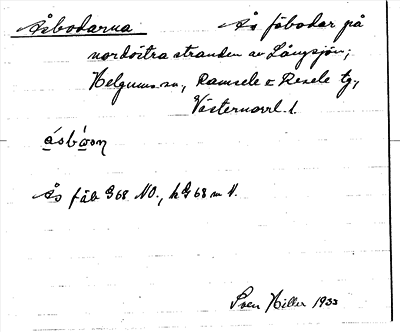 Åsbodarna Ås fäbodar på
nordöstra stranden av Långsjön;
Helgums sn, Ramsele o Resele tg,
Västernorrl. l.
åsbὠon
Ås fäb G68 NO., h G68 m V.
Sven Hiller 1933